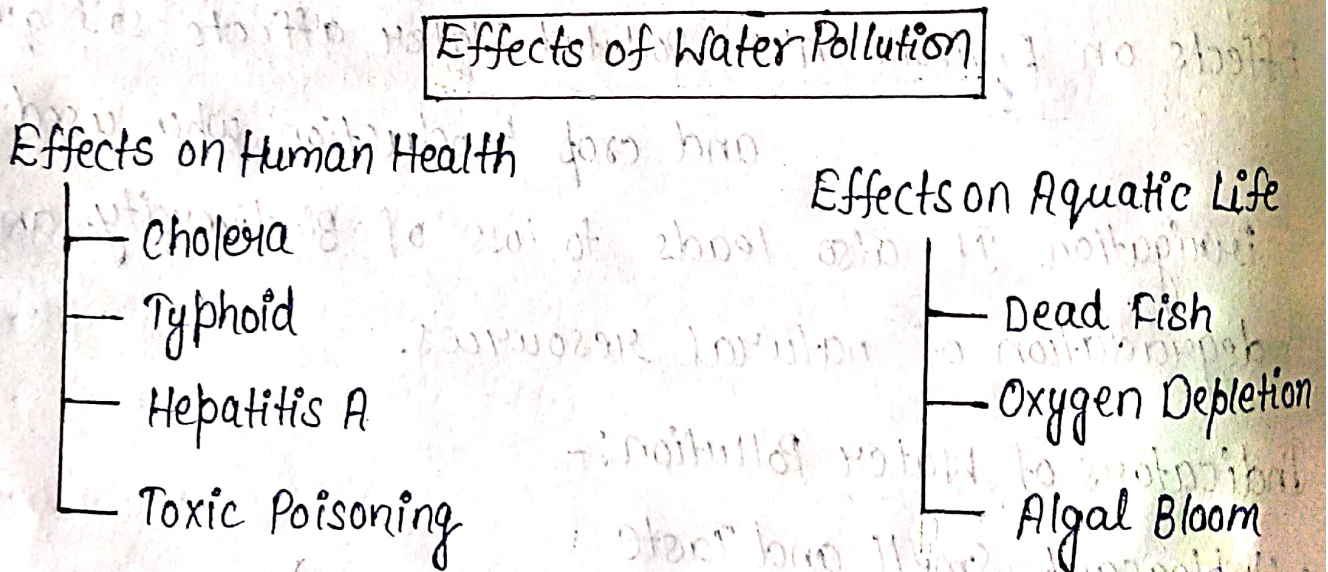 Effects of Water Pollution
Effects on Human Health
Cholera
Typhoid
Hepatitis A
Toxic Poisoning
Effects on Aquatic Life
Dead Fish
Oxygen Depletion
Algal Bloom